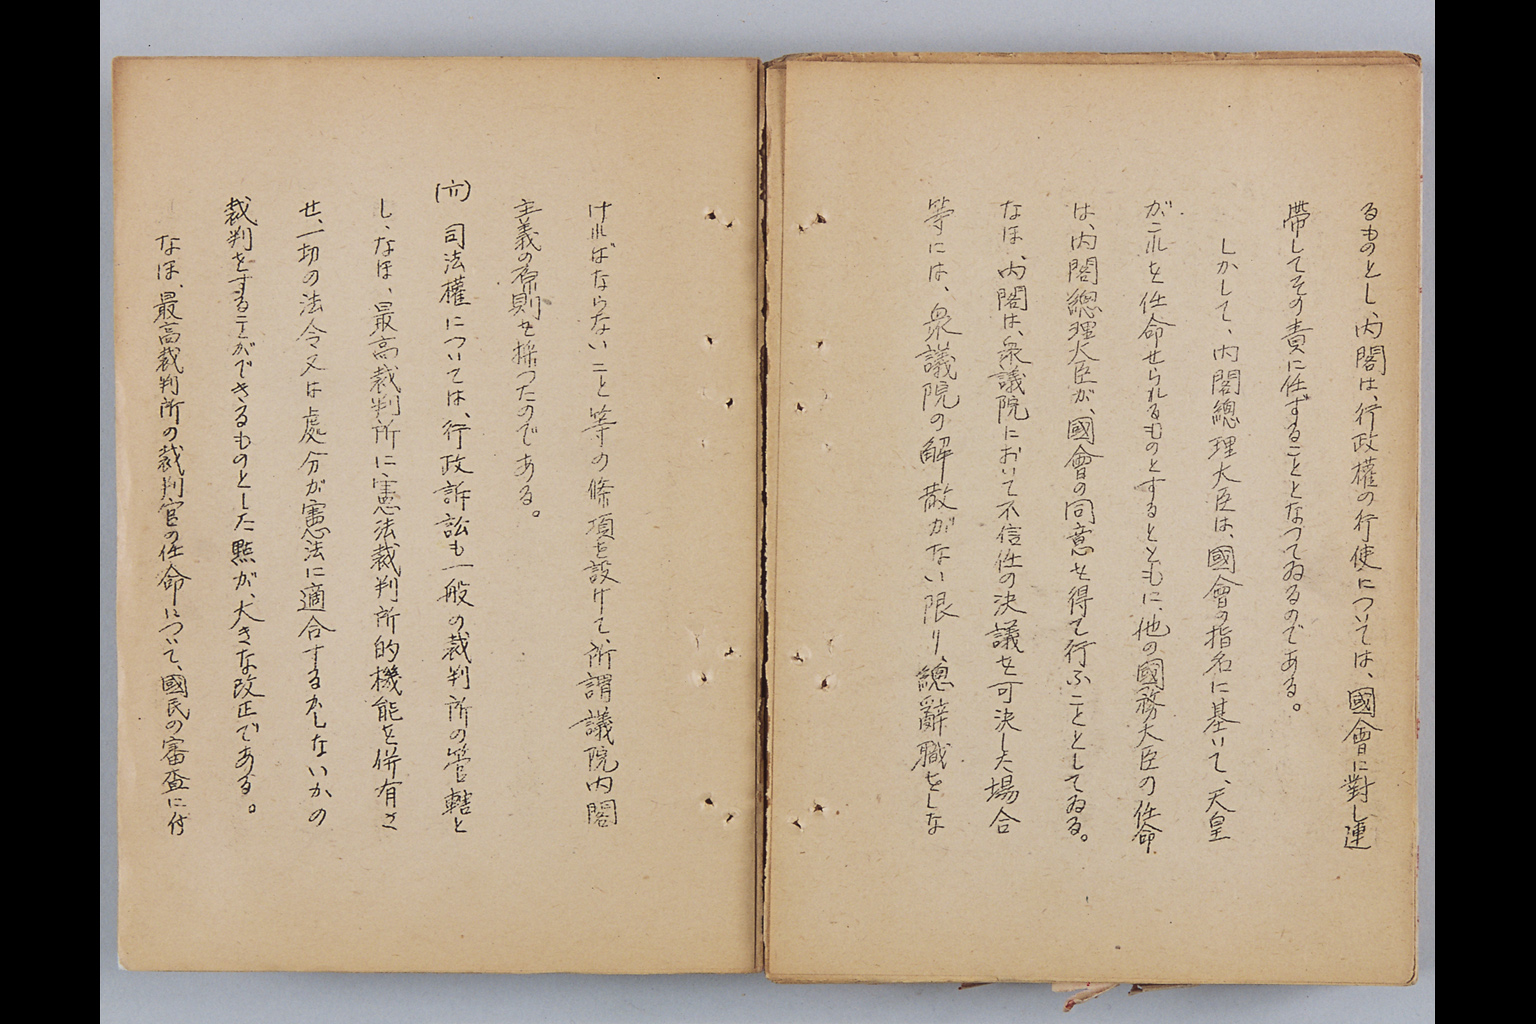 るものとし、内閣は、行政權の行使については、國會に對し連
帶してその責に任ずることとなつてゐるのである。
しかして、内閣總理大臣は、國會の指名に基いて、天皇
がこれを任命せられるものとするとともに、他の國務大臣の任命
は、内閣總理大臣が、國會の同意を得て行ふこととしてゐる。
なほ、内閣は、衆議院において不信任の決議を可決した場合
等には、衆議院の解散がない限り、總辭職をしな
ければならないこと等の條項を設けて、所謂議院内閣
主義の原則を採つたのである。
(六) 司法權については、行政訴訟も一般の裁判所の管轄と
し、なほ、最高裁判所に憲法裁判所的機能を併有さ
せ、一切の法令又は處分が憲法に適合するかしないかの
裁判をすることができるものとした點が、大きな改正である。
なほ、最高裁判所の裁判官の任命について、國民の審査に付